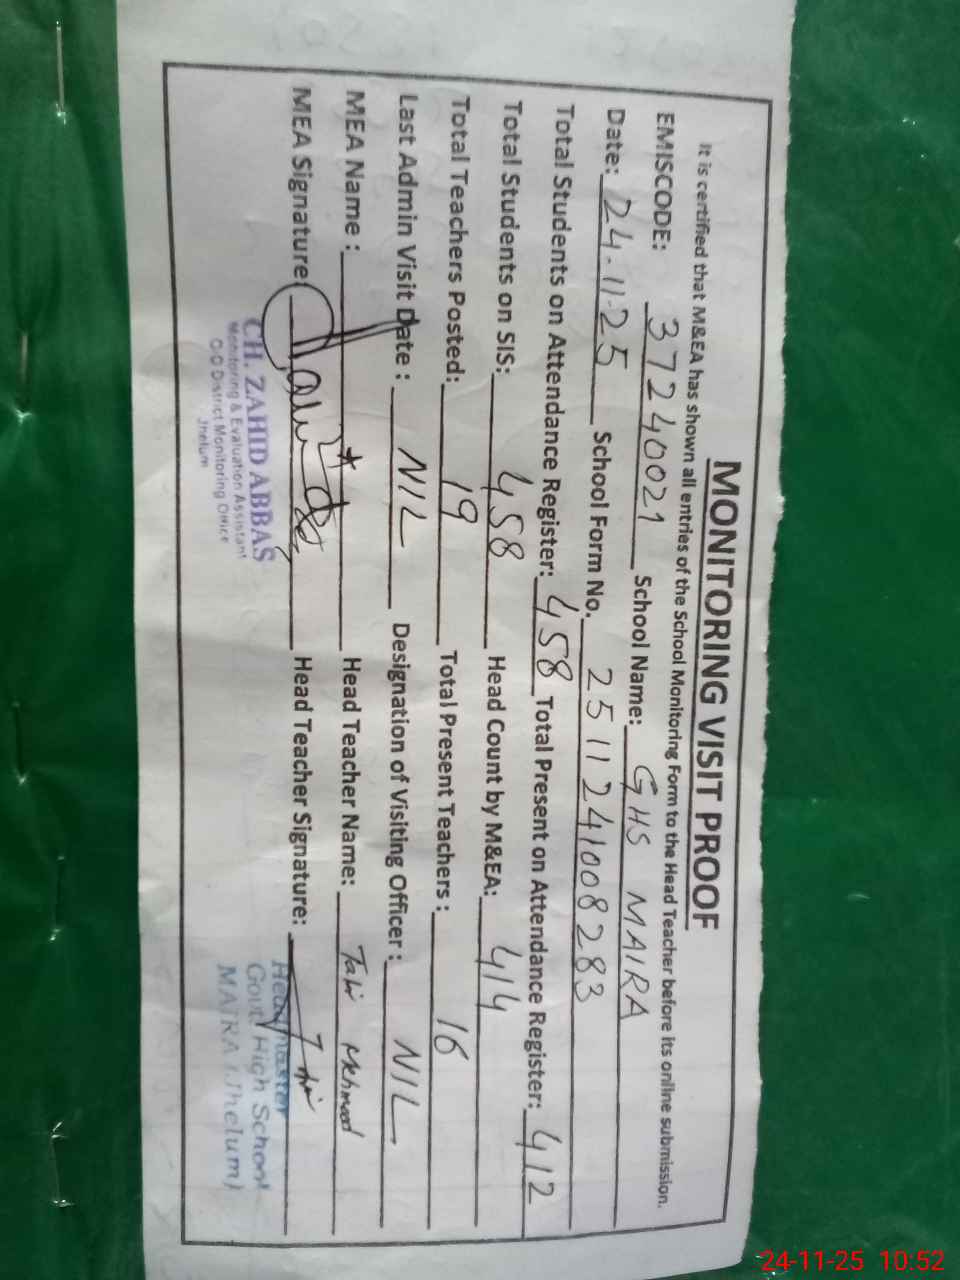 MONITORING VISIT PROOF
It is certified that M&EA has shown all entries of the School Monitoring Form to the Head Teacher before its online submission.
EMISCODE: 37240021 School Name: GHS MAIRA
Date: 24-11-25 School Form No. 2511241008283
Total Students on Attendance Register: 458 Total Present on Attendance Register: 412
Total Students on SIS: 458 Head Count by M&EA: 414
Total Teachers Posted: 19 Total Present Teachers : 16
Last Admin Visit Date : NIL Designation of Visiting Officer : NIL
MEA Name : Head Teacher Name: Mehmood
MEA Signature: Head Teacher Signature:
CH. ZAHID ABBAS
Monitoring & Evaluation Assistant
C/O District Monitoring Office
Jhelum
Headmaster
Govt High School
MAIRA (Jhelum)
24-11-25 10:52